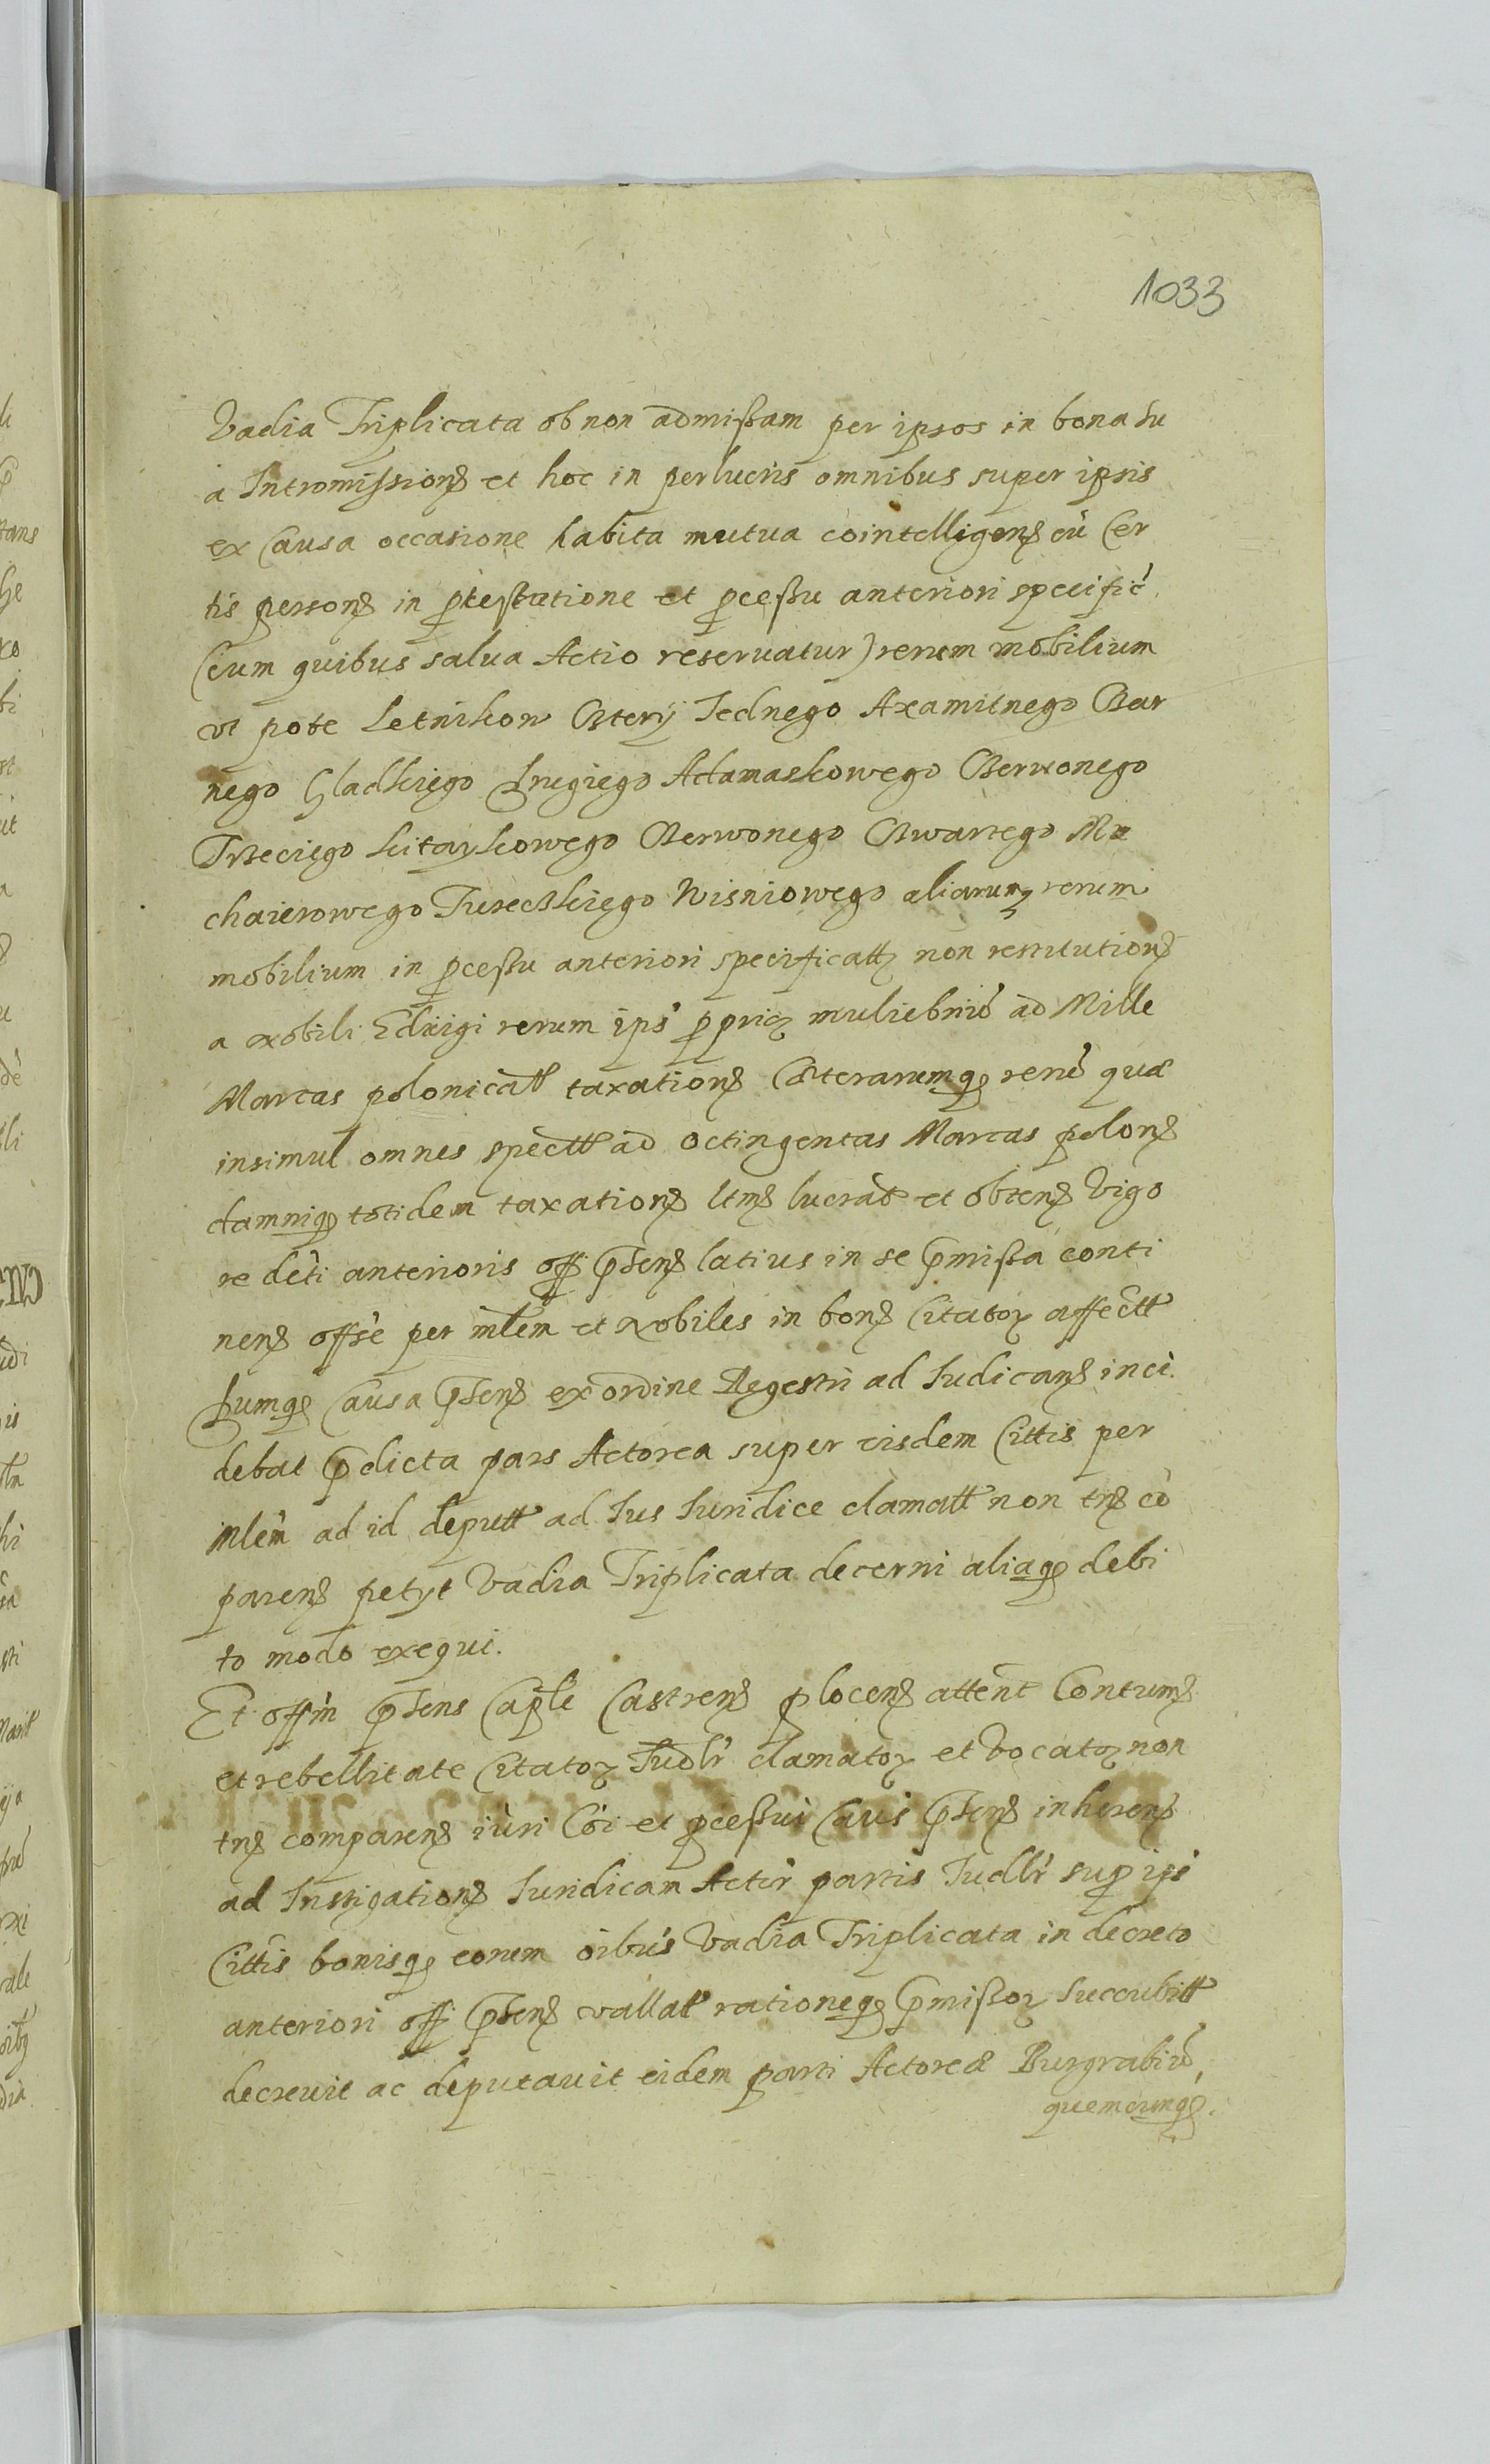 1033
Vadia Triplicata ob non admißam per ipsos in bona su
a Intromissione et hoc in perlucris omnibus super ipsis
ex Causa occasione habita mutua cointelligen cũ Cer
tis person in ptestatione et pceßu anteriori specific
(cum quibus salua Actio reseruatur) rerum mobilium
vt pote Letnikow Cztery Jednego Axamitnego Czar
nego Gladkiego Drugiego Adamaskowego Czerwonego
Trzeciego kitaykowego Czerwonego Czwartego Mu
chaierowego Tureczkiego Wisniowego aliarumq rerum
mobilium in pceßu anteriori specificatt non restitution
a Nobili Edvigi rerum ips pprie muliebriũ ad Mille
Marcas polonicatt taxation Cæterarumq rerũ quæ
insimul omnes spectt ad octingentas Marcas polon
damniq totidem taxation ltm lucrat et obten Vigo
re deti anterioris off pnsen latius in se pmißa conti
nen offse per mlem et Nobiles in bon Citator affectt
Dumq Causa pnsen ex ordine Regestri ad Iudican inci
debat pdicta pars Actorea super eisdem Cittis per
mlem ad id deputt ad Ius Iuridice clamatt non tn cõ
paren petyt Vadia Triplicata decerni aliaq debi
to modo exequi.
Et offm pnsens Caple Castren plocen attent Contum
et rebellitate Citator Iudlr clamator et Vocator non
tn comparen iuri Cõi et pceßui Caus pnsen inheren
ad Instigation Iuridicam Actor partis Iudlr sup ips
Cittis bonisq eorum oibus Vadia Triplicata in decreto
anteriori off pnsen vallat rationeq pmißor succubitt
decreuit ac deputauit eidem parti Actoreæ Burgrabiũ
quemcunq.